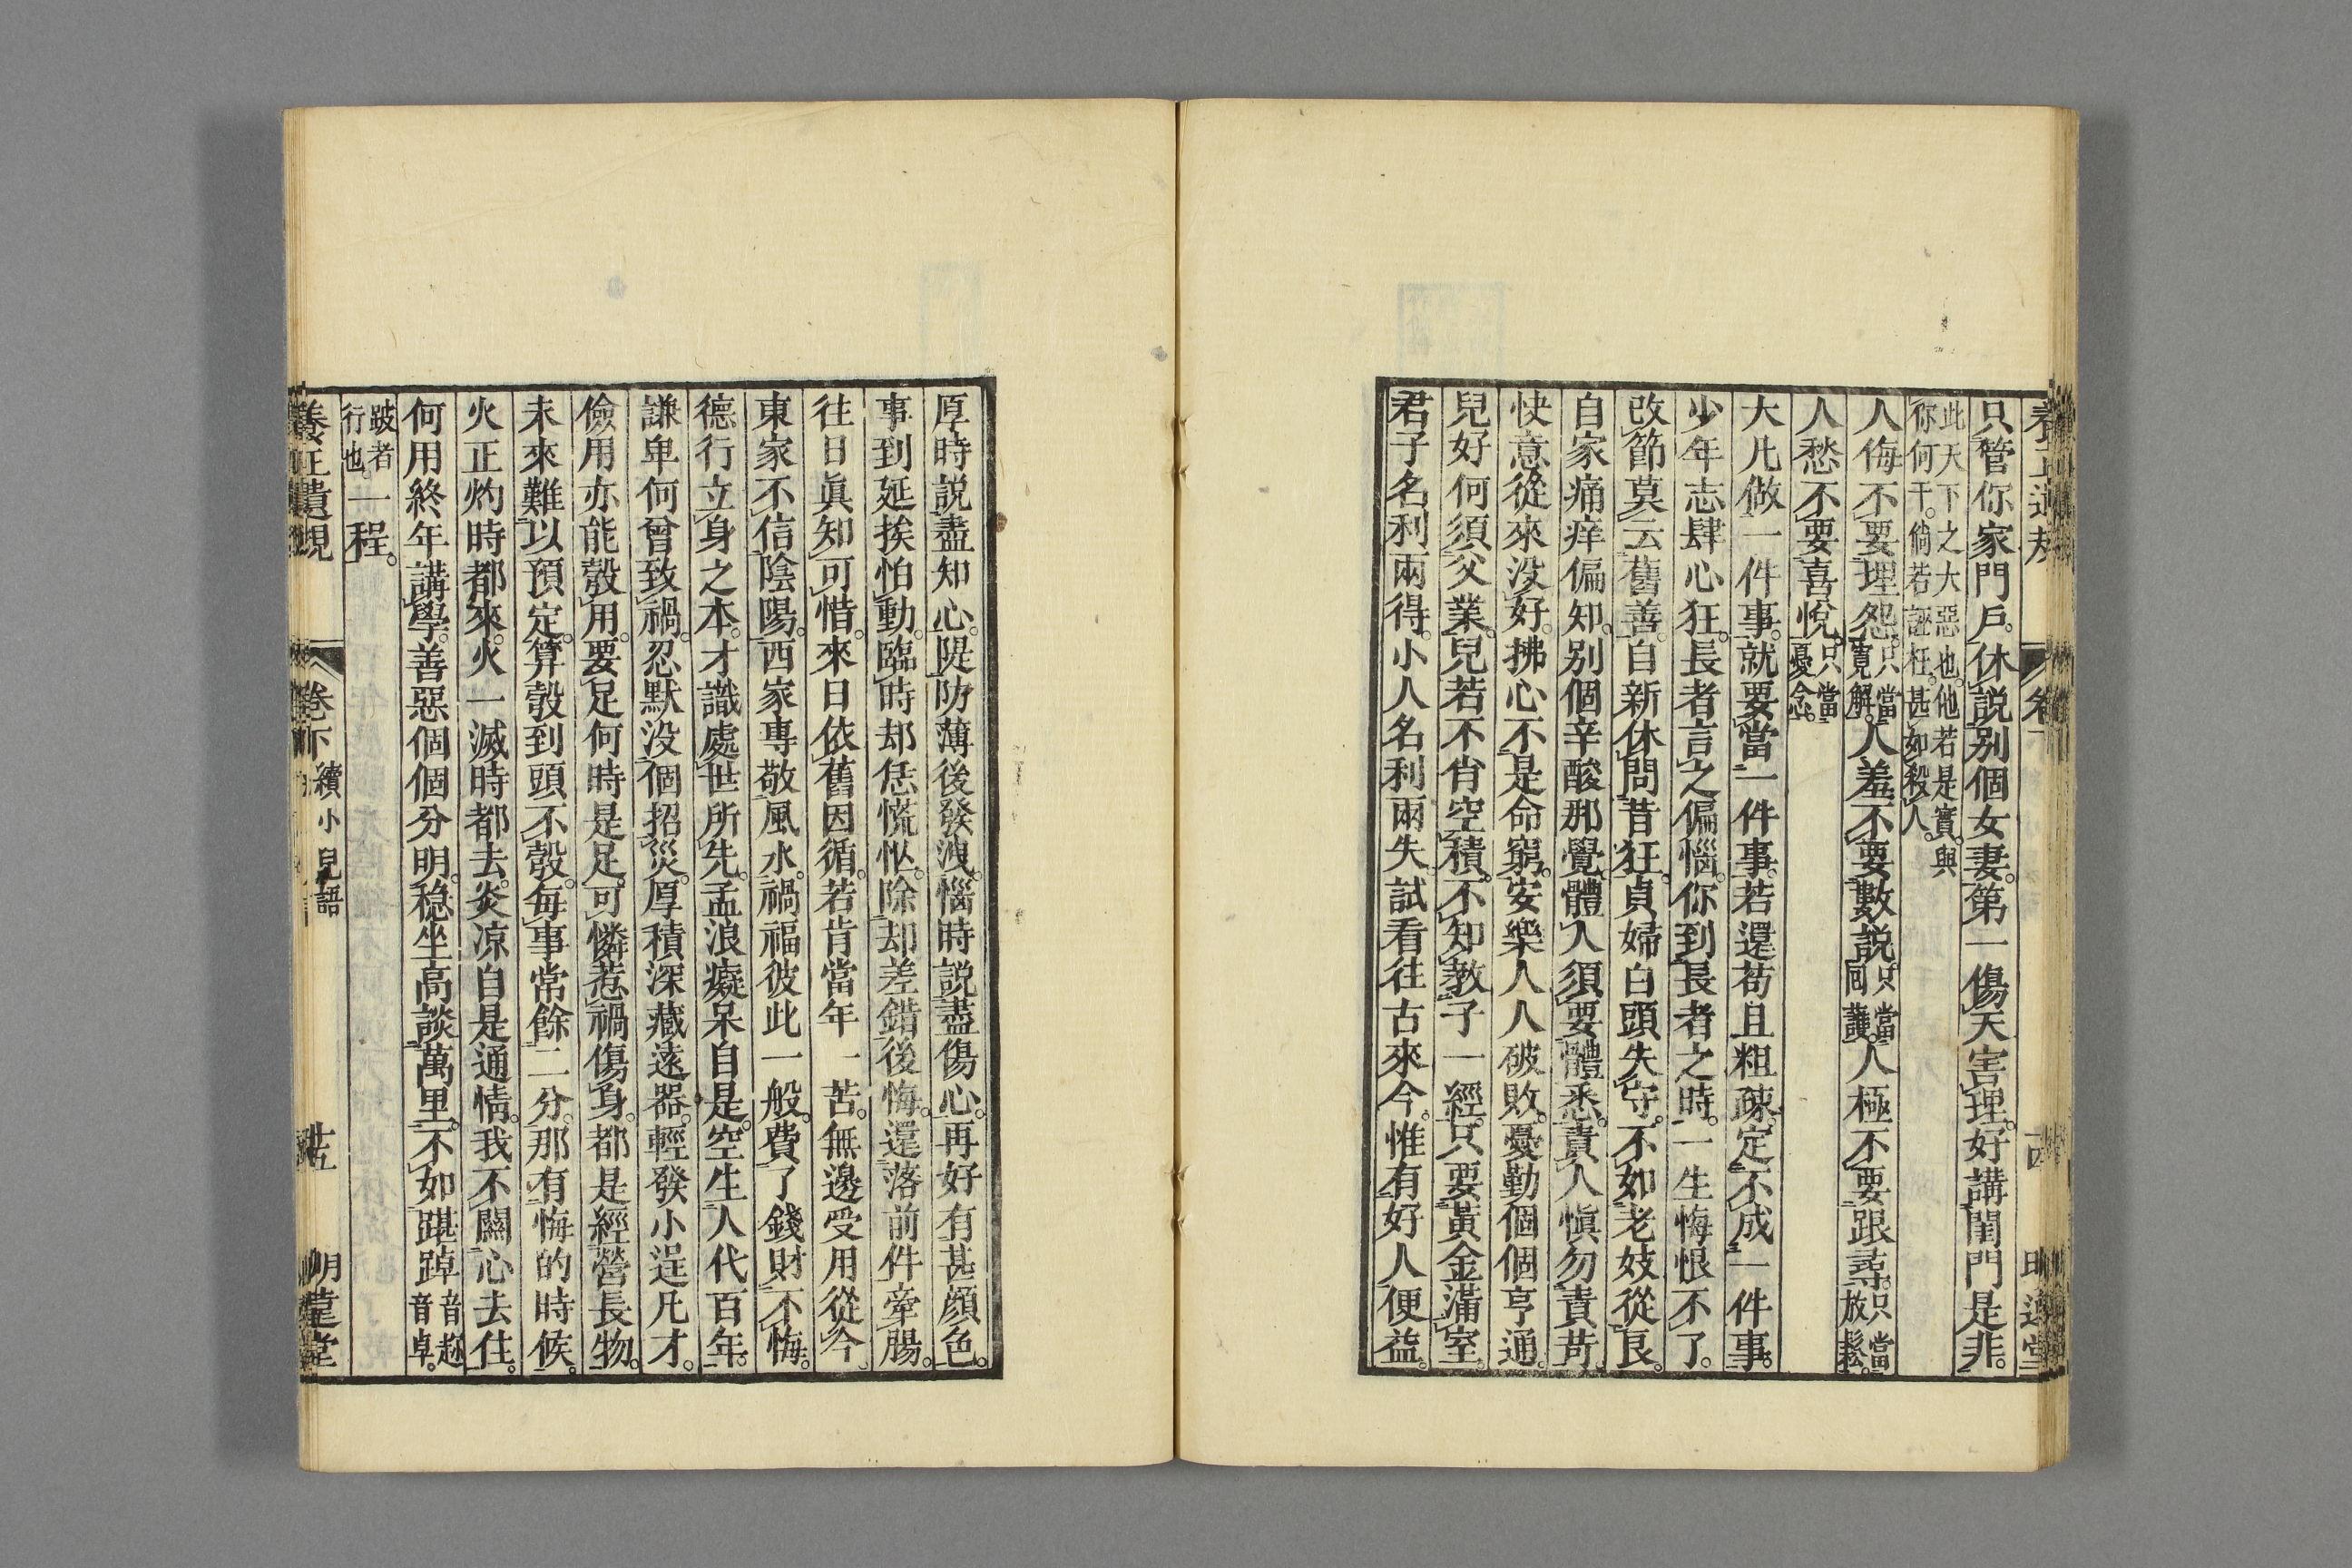 只管你家門戶。休說別個女妻。第一傷天害理。好講閨門是非。
此天下之大惡也。他若是實。與
你何干。倘若誣枉。甚如殺人。
人侮不要埋怨。只當寬解。人羞不要數說。只當回護。人極不要跟尋。只當放鬆。
人愁不要喜悅。只當憂念。
大凡做一件事。就要當一件事。若還苟且粗疎。定不成一件事。
少年志肆心狂。長者言之偏惱。你到長者之時。一生悔恨不了。
改節莫云舊善。自新休問昔狂。貞婦白頭失守。不如老妓從良。
自家痛痒偏知。別個辛酸那覺。體人須要體悉。責人愼勿責苛。
快意從來没好。拂心不是命窮。安樂人人破敗。憂勤個個亨通。
兒好何須父業。兒若不肖空積。不知教子一經。只要黃金滿室。
君子名利兩得。小人名利兩失。試看往古來今。惟有好人便益。
厚時說盡知心。隄防薄後發洩。惱時說盡傷心。再好有甚顏色。
事到延挨怕動。臨時却恁慌忙。除却差錯後悔。還落前件牽腸。
往日眞知可惜。來日依舊因循。若肯當年一苦。無邊受用從今
東家不信陰陽。西家專敬風水。禍福彼此一般。費了錢財不悔。
德行立身之本。才識處世所先。孟浪癡呆自是。空生人代百年。
謙卑何曾致禍。忍默没個招災。厚積深藏遠器。輕發小逞凡才。
儉用亦能彀用。要足何時是足。可憐惹禍傷身。都是經營長物。
未來難以預定。算彀到頭不彀。每事常餘二分。那有悔的時候。
火正灼時都來。火一滅時都去。炎凉自是通情。我不關心去住。
何用終年講學。善惡個個分明。穩坐高談萬里。不如踸踔音趁音卓。
跛者行也。一程。
養正遺規 卷下 續小兒語 廿五 明道堂